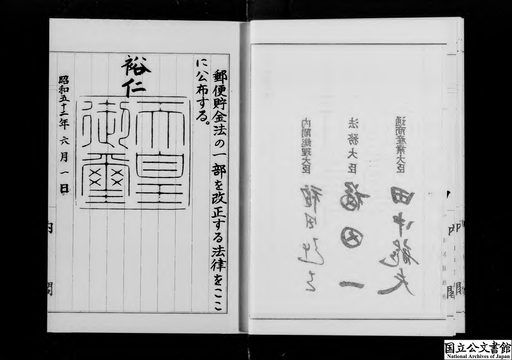 郵便貯金法の一部を改正する法律をここ
に公布する。
裕仁
天皇御璽
昭和五十二年六月一日
内閣
通商産業大臣
田中龍夫
法務大臣
福田一
内閣総理大臣
福田赳夫
国立公文書館
National Archives of Japan